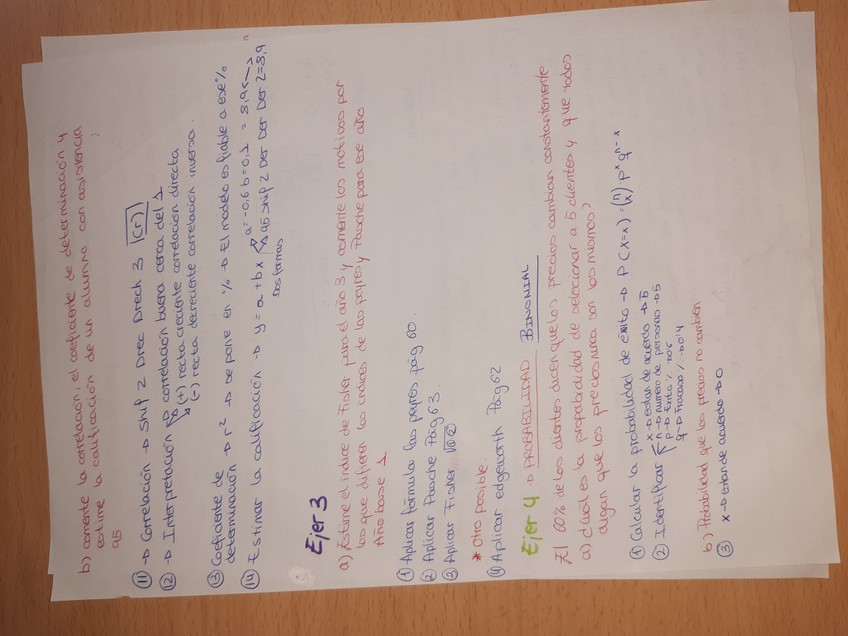 b) comente la correlación, el coeficiente de determinación y
estime la calificación de un alumno con asistencia
95
⑪ → Correlación → Shif 2 Drec Drech 3 (r)
⑫ → Interpretación → correlación buena cerca del 1
(+) recta creciente correlación directa
(-) recta decreciente correlación inversa.
⑬ Coeficiente de
determinación → r² → Se pone en % → El modelo es fiable a ese %
⑭ Estimar la calificación → y = a + bx
a = -0,6 b = 0,1 = 8,95
95 Shif 2 Der Der Der 2 = 8,9
Dos formas
Ejer 3
a) Estime el indice de Fisher para el año 3 y comente los motivos por
los que difieren los indices de las peyres y Pasche para ese año
Año base 1
① Aplicar fórmula las peyres pág 60.
② Aplicar Pasche Pág 63.
③ Aplicar Fisher
* Otro posible
④ Aplicar edgeworth Pág 62
Ejer 4 → PROBABILIDAD BINOMIAL
El 60% de los clientes dicen que los precios cambian constantemente
a) ¿Cuál es la probabilidad de selecionar a 5 clientes y que todos
digan que los precios son los mismos?
① Calcular la probabilidad de éxito → P(X=x) = (n x) pˣ qⁿ⁻ˣ
② Identificar
x → estan de acuerdo → 5
n → número de personas → 5
p → Exito /
q → Fracaso / → 0'4
b) Probabilidad que los precios no cambien
③ x → estan de acuerdo → 0